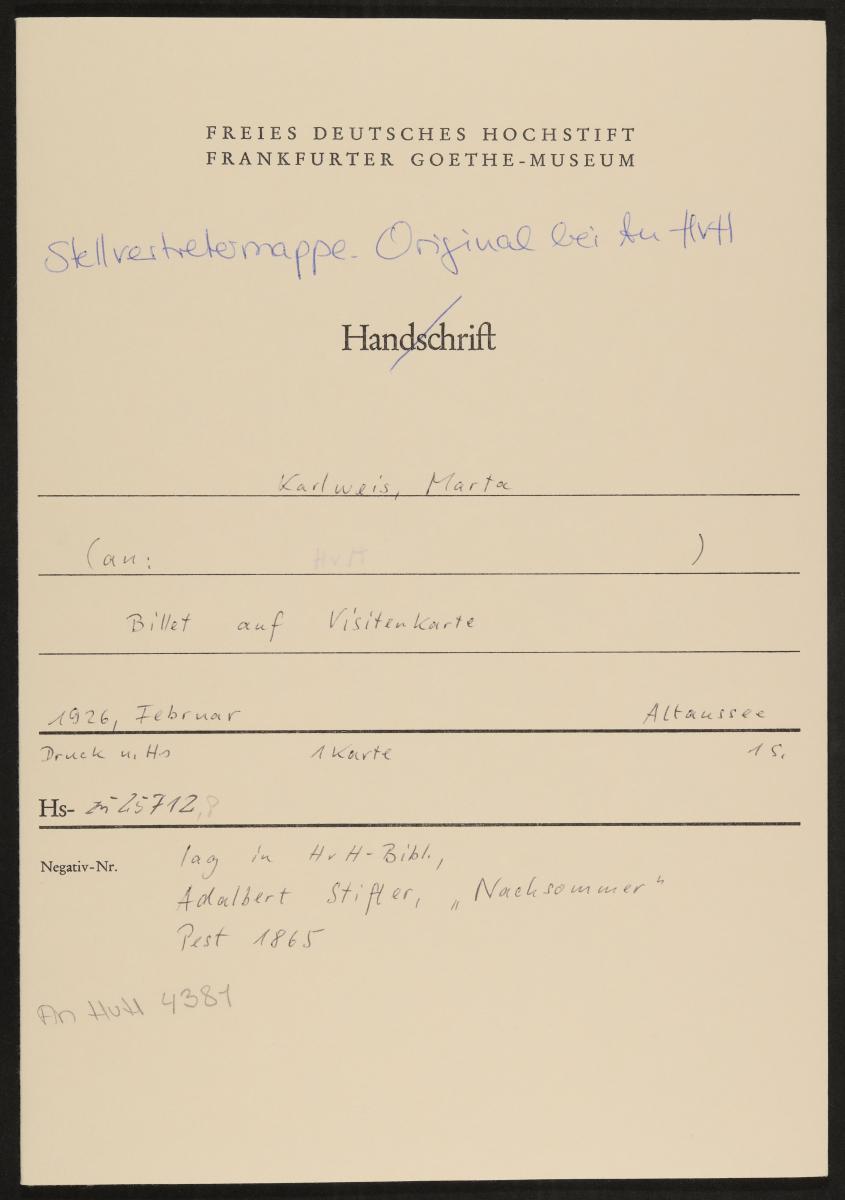 FREIES DEUTSCHES HOCHSTIFT
FRANKFURTER GOETHE-MUSEUM
Stellvertretermappe. Original bei An HvH
Handschrift
Karlweis, Marta
(an: HvH )
Billet auf Visitenkarte
1926, Februar Altaussee
Druck u. Hs 1 Karte 1 S.
Hs- zu 25712,8
Negativ-Nr. lag in HvH-Bibl.,
Adalbert Stifter, „Nachsommer"
Pest 1865
An HvH 4381